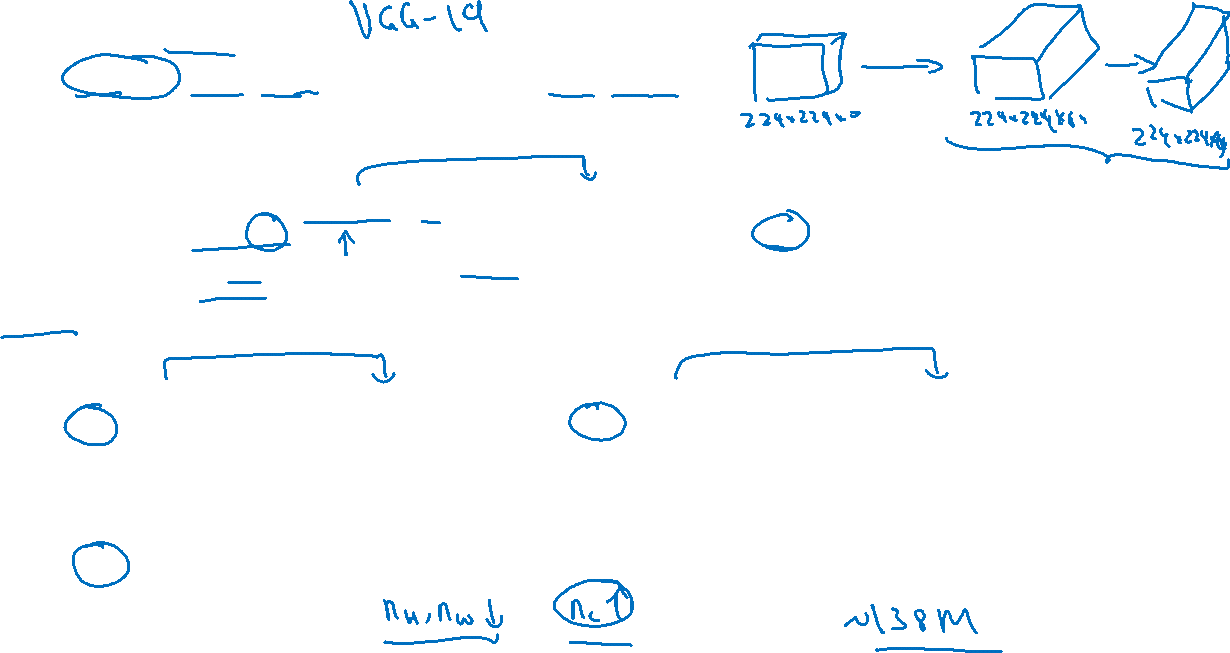 VGG-19
224×224×3
224×224×64
224×224×64
nH, nW ↓
nC ↑
~138M